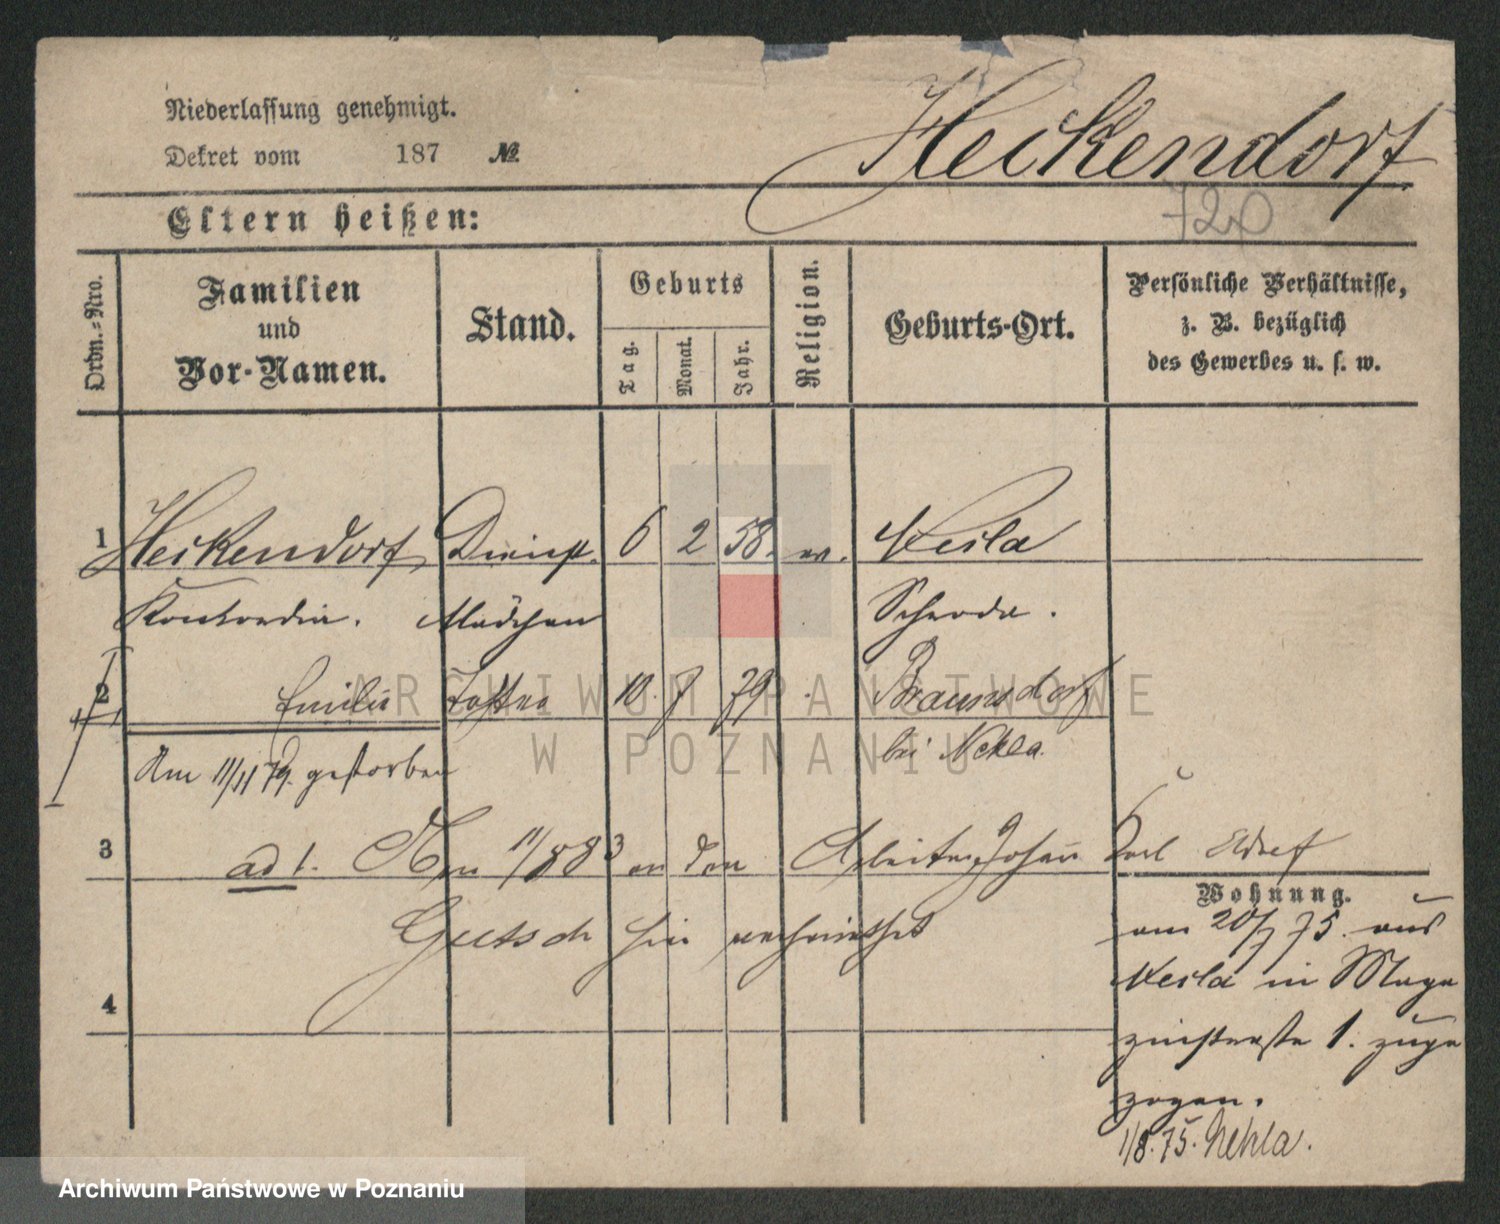 Heckendorf
Niederlassung genehmigt.
Dekret vom 187 №
720
Eltern heißen:
Ordn.=Nro.
Familien
und
Vor-Namen.
Stand.
Geburts
Tag.
Monat.
Jahr.
Religion.
Geburts-Ort.
Persönliche Verhältnisse,
z. B. bezüglich
des Gewerbes u. s. w.
1 Heckendorf Dienst 6 2 58. ev.
Konkordia. Mädchen Schroda.
2 Emilie Tochter 10. 79 Braunsdorf
bei Nekla.
Am 11/11 79. gestorben
3 ad 1. 11/8 83 an den Arbeiter Johann Karl
Gutsch hier verheirathet
4
Wohnung.
am 20/7 75. aus
in Maga
zinstraße 1. zuge
zogen.
1/8.75. Nekla.
ARCHIWUM PAŃSTWOWE
W POZNANIU
Archiwum Państwowe w Poznaniu